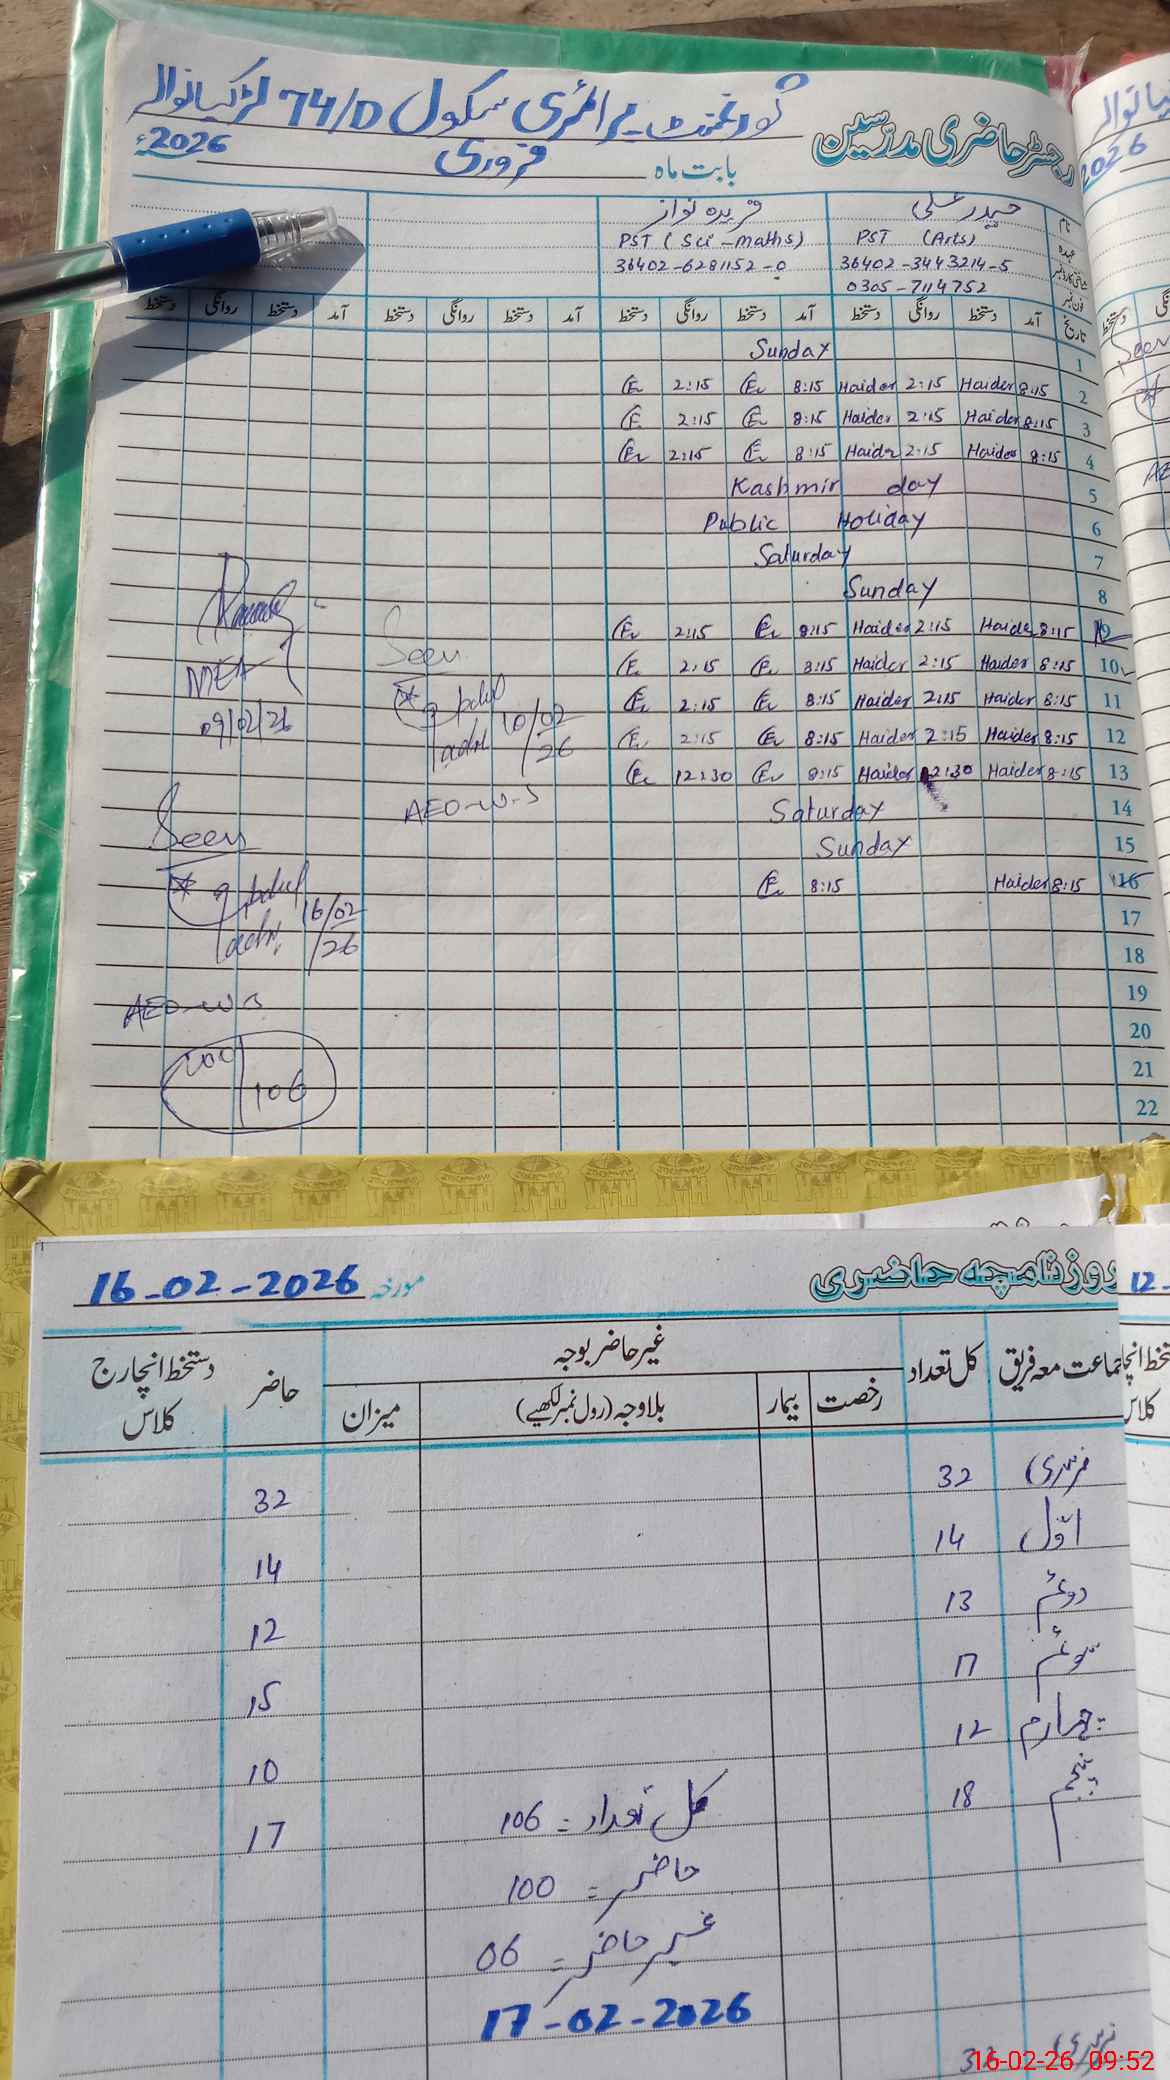 رجسٹر حاضری مدرسین
گورنمنٹ پرائمری سکول 74/D لڑکیانوالہ
بابت ماہ فروری 2026ء
نام حیدر علی فریدہ نواز
عہدہ PST (Arts) PST (Sci-maths)
شناختی کارڈ نمبر 36402-3443214-5 36402-6281152-0
فون نمبر 0305-7114752
تاریخ آمد دستخط روانگی دستخط آمد دستخط روانگی دستخط آمد دستخط روانگی دستخط آمد دستخط روانگی دستخط
1 Sunday
2 8:15 Haider 2:15 Haider 8:15 2:15
3 8:15 Haider 2:15 Haider 8:15 2:15
4 8:15 Haider 2:15 Haider 8:15 2:15
5 Kashmir day
6 Public Holiday
7 Saturday
8 Sunday
9 8:15 Haider 2:15 Haider 8:15 2:15
10 8:15 Haider 2:15 Haider 8:15 2:15
11 8:15 Haider 2:15 Haider 8:15 2:15
12 8:15 Haider 2:15 Haider 8:15 2:15
13 8:15 Haider 12:30 Haider 8:15 12:30
14 Saturday
15 Sunday
16 8:15 Haider 8:15
17
18
19
20
21
22
MEA
09/02/26
Seen
10/02/26
AEO-W-S
Seen
16/02/26
AEO-W-S
100/106
2026
Seen
روزنامچہ حاضری
مورخہ 16-02-2026
جماعت معہ فریق کل تعداد غیر حاضر بوجہ حاضر دستخط انچارج کلاس
رخصت بیمار بلاوجہ (رول نمبر لکھیے) میزان
نرسری 32 32
اوّل 14 14
دوئم 13 12
سوئم 17 15
چہارم 12 10
پنجم 18 17
کل تعداد = 106
حاضر = 100
غیر حاضر = 06
17-02-2026
نرسری 32
12-
16-02-26 09:52